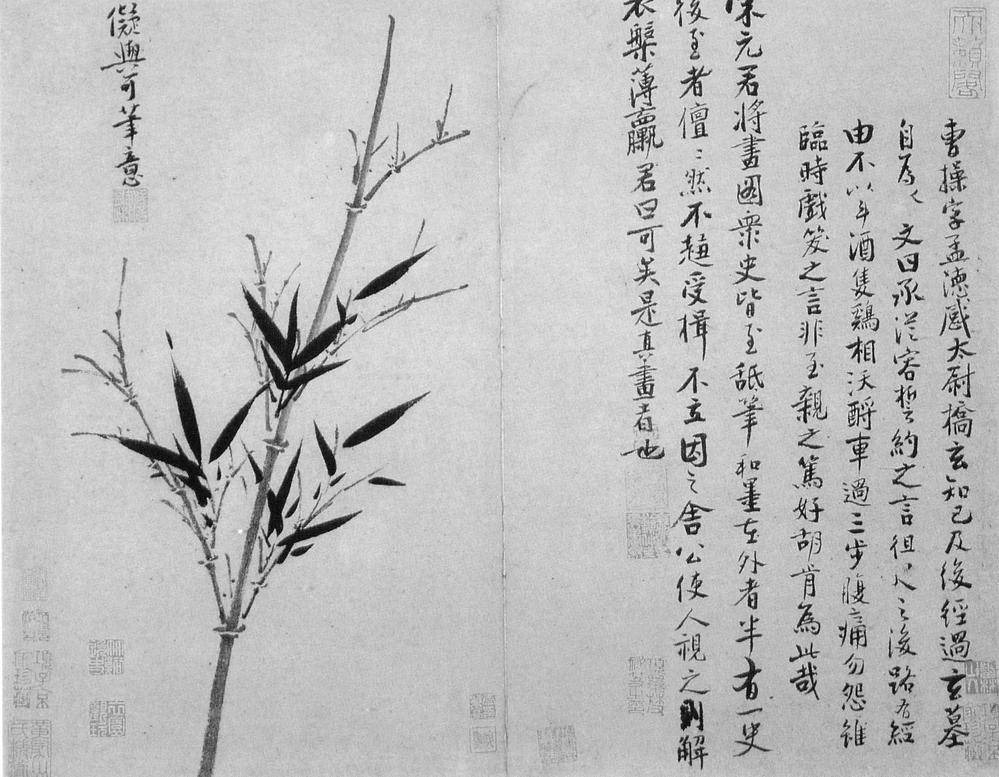 天籟閣
曹操字孟德感太尉橋玄知己及後經過玄墓
自為文曰承從容誓約之言徂之後路有經
由不以斗酒隻鷄相沃酹車過三步腹痛勿怨雖
臨時戲笑之言非至親之篤好胡肯為此哉
宋元君將畫圖衆史皆至舐筆和墨在外者半有一史
後至者儃〻然不趨受揖不立因之舍公使人視之則解
衣槃薄臝君曰可矣是真畫者也
儗與可筆意